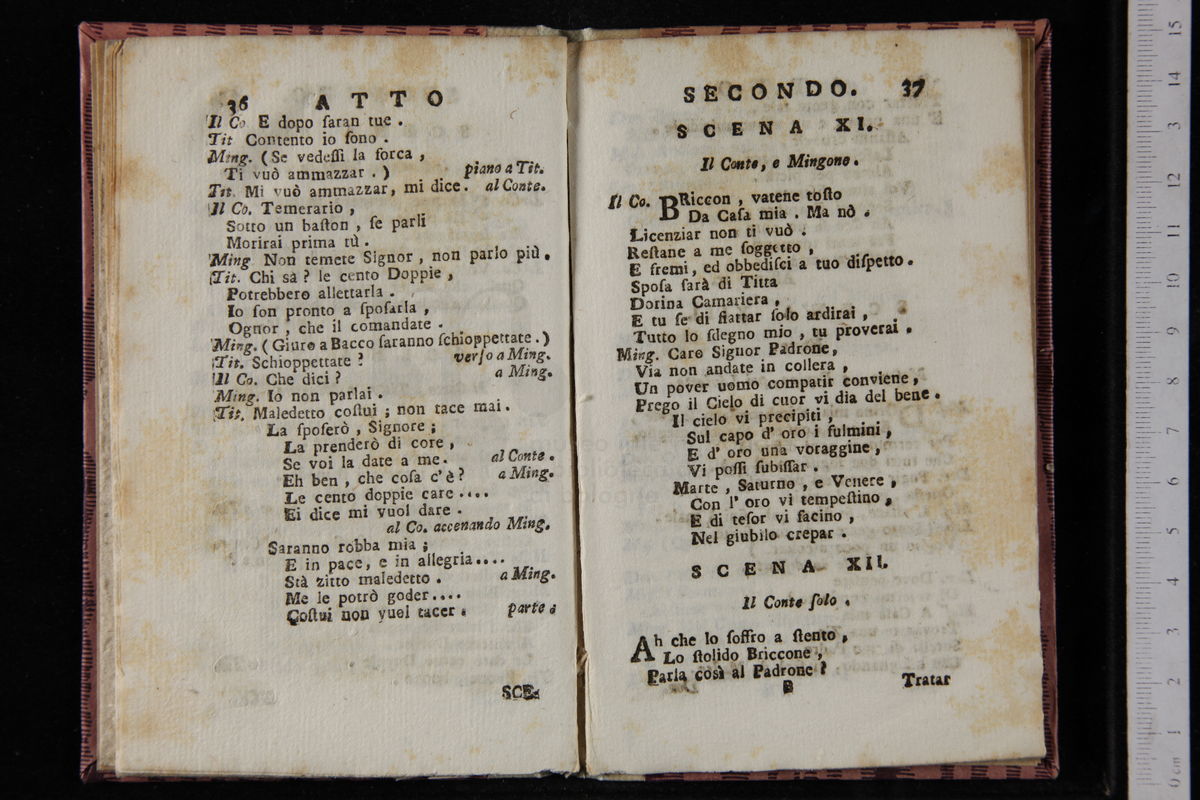 36 ATTO
Il Co E dopo ſaran tue .
Tit Contento io ſono .
Ming. ( Se vedeſſi la forca ,
Ti vuò ammazzar . ) piano a Tit.
Tit. Mi vuò ammazzar, mi dice. al Conte.
Il Co. Temerario ,
Sotto un baſton , ſe parli
Morirai prima tù .
Ming Non temete Signor , non parlo più.
Tit. Chi sà ? le cento Doppie ,
Potrebbero allettarla .
Io ſon pronto a ſpoſarla ,
Ognor , che il comandate .
Ming. ( Giuro a Bacco ſaranno ſchioppettate . )
Tit. Schioppettate ? verſo a Ming.
Il Co. Che dici ? a Ming.
Ming. Io non parlai .
Tit. Maledetto coſtui ; non tace mai .
La ſpoſerò , Signore ;
La prenderò di core ,
Se voi la date a me. al Conte .
Eh ben , che coſa c'è ? a Ming.
Le cento doppie care ....
Ei dice mi vuol dare .
al Co. accenando Ming.
Saranno robba mia ;
E in pace, e in allegria....
Stà zitto maledetto . a Ming.
Me le potrò goder....
Coſtui non vuol tacer . parte .
SCE.
SECONDO. 37
SCENA XI.
Il Conte, e Mingone.
Il Co. BRiccon , vatene toſto
Da Caſa mia . Ma nò .
Licenziar non ti vuò .
Reſtane a me ſoggetto ,
E fremi, ed obbediſci a tuo diſpetto.
Spoſa ſarà di Titta
Dorina Camariera ,
E tu ſe di fiattar ſolo ardirai ,
Tutto lo ſdegno mio , tu proverai .
Ming. Caro Signor Padrone,
Via non andate in collera ,
Un pover uomo compatir conviene,
Prego il Cielo di cuor vi dia del bene .
Il cielo vi precipiti ,
Sul capo d' oro i fulmini ,
E d' oro una voraggine ,
Vi poſſi ſubiſſar .
Marte , Saturno , e Venere ,
Con l' oro vi tempeſtino ,
E di teſor vi facino ,
Nel giubilo crepar .
SCENA XII.
Il Conte ſolo .
Ah che lo ſoffro a ſtento ,
Lo ſtolido Briccone ,
Parla così al Padrone ?
B Tratar